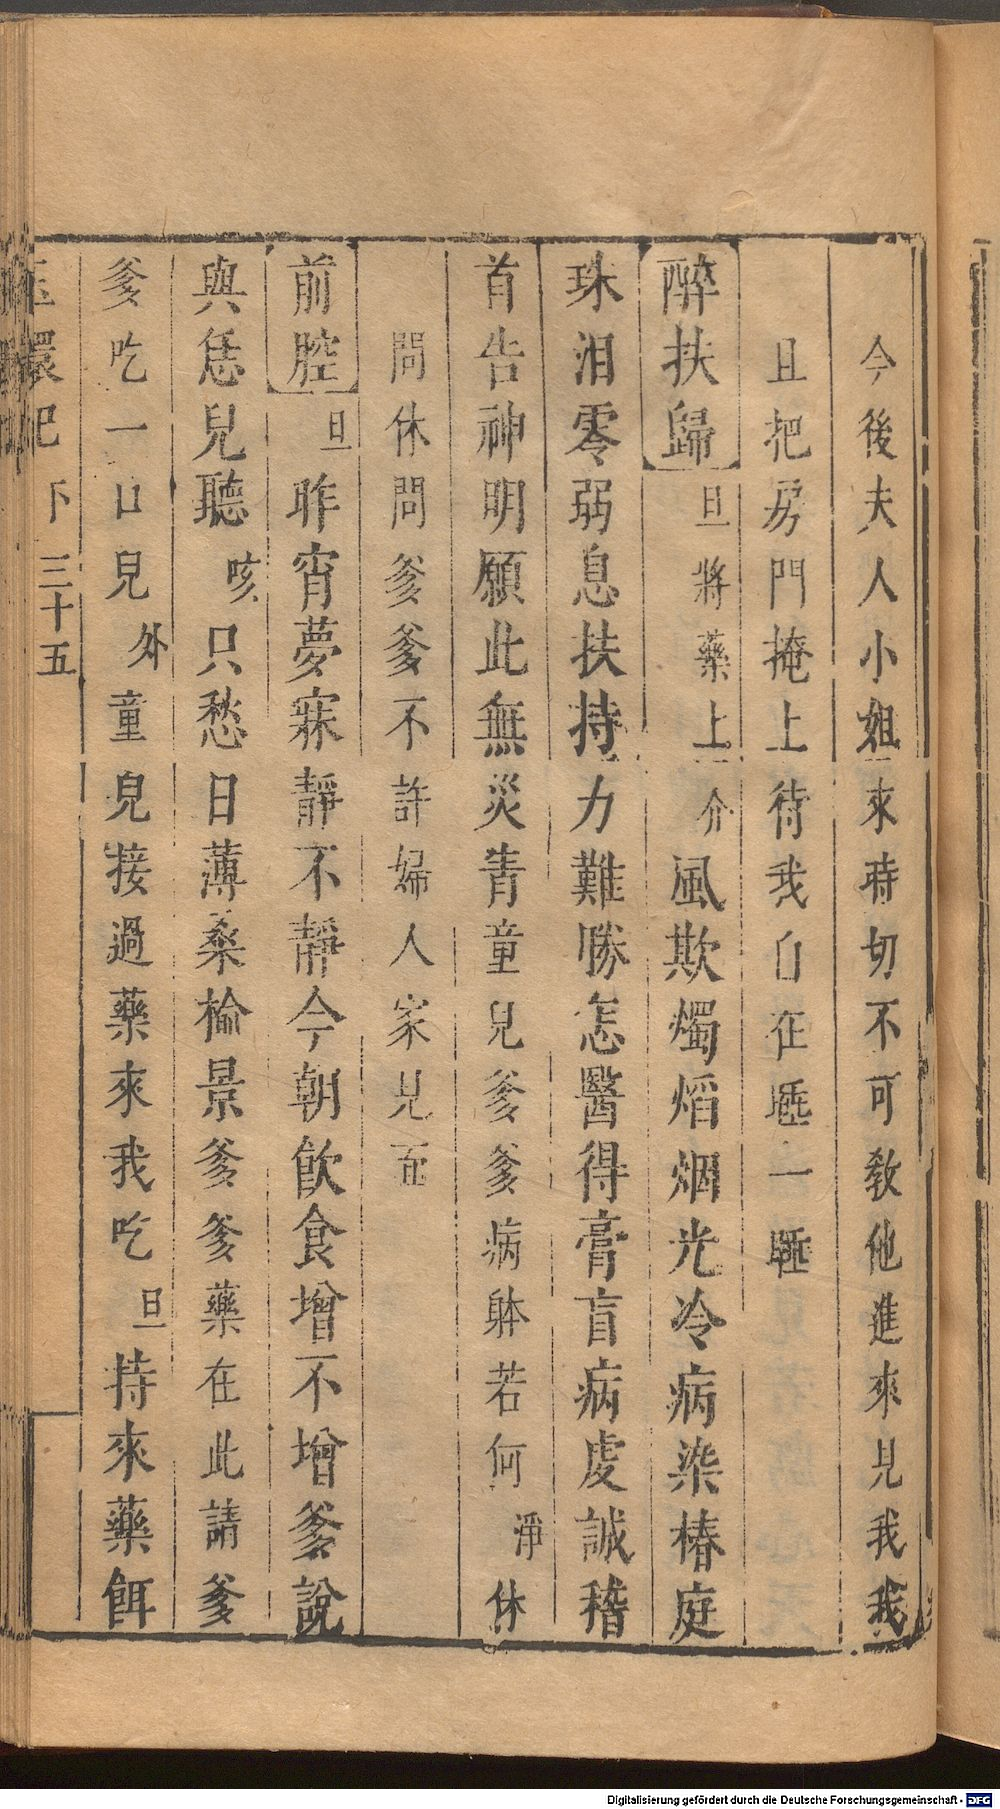 今後夫人小姐來時切不可敎他進來見我我
且把房門掩上待我自在睡一睡
醉扶歸旦將藥上介風欺燭焰烟光冷病染椿庭
珠泪零弱息扶持力難勝怎醫得膏盲病虔誠稽
首告神明願此無災青童兒爹爹病躰若何淨休
問休問爹爹不許婦人家見面
前腔旦昨宵夢寐靜不靜今朝飲食增不增爹說
與恁兒聽咳只愁日薄桑榆景爹爹藥在此請爹
爹吃一口兒外童兒接過藥來我吃旦持來藥餌
玉環記 下 三十五
Digitalisierung gefördert durch die Deutsche Forschungsgemeinschaft - DFG